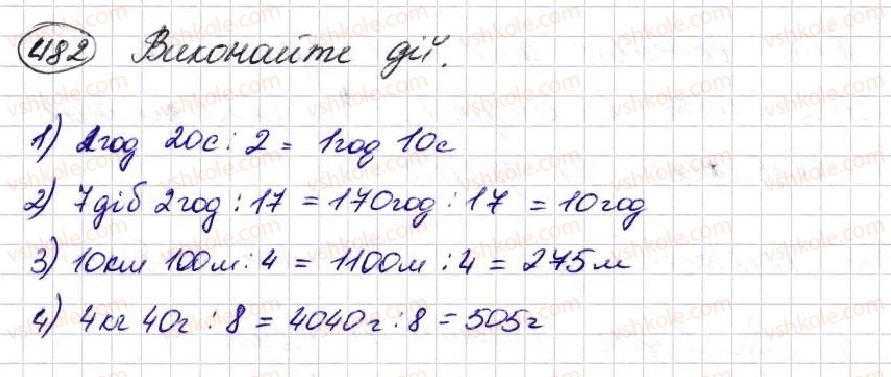 482 Виконайте дії.
1) 2год 20с : 2 = 1год 10с
2) 7діб 2год : 17 = 170год : 17 = 10год
3) 10км 100м : 4 = 1100м : 4 = 275м
4) 4кг 40г : 8 = 4040г : 8 = 505г